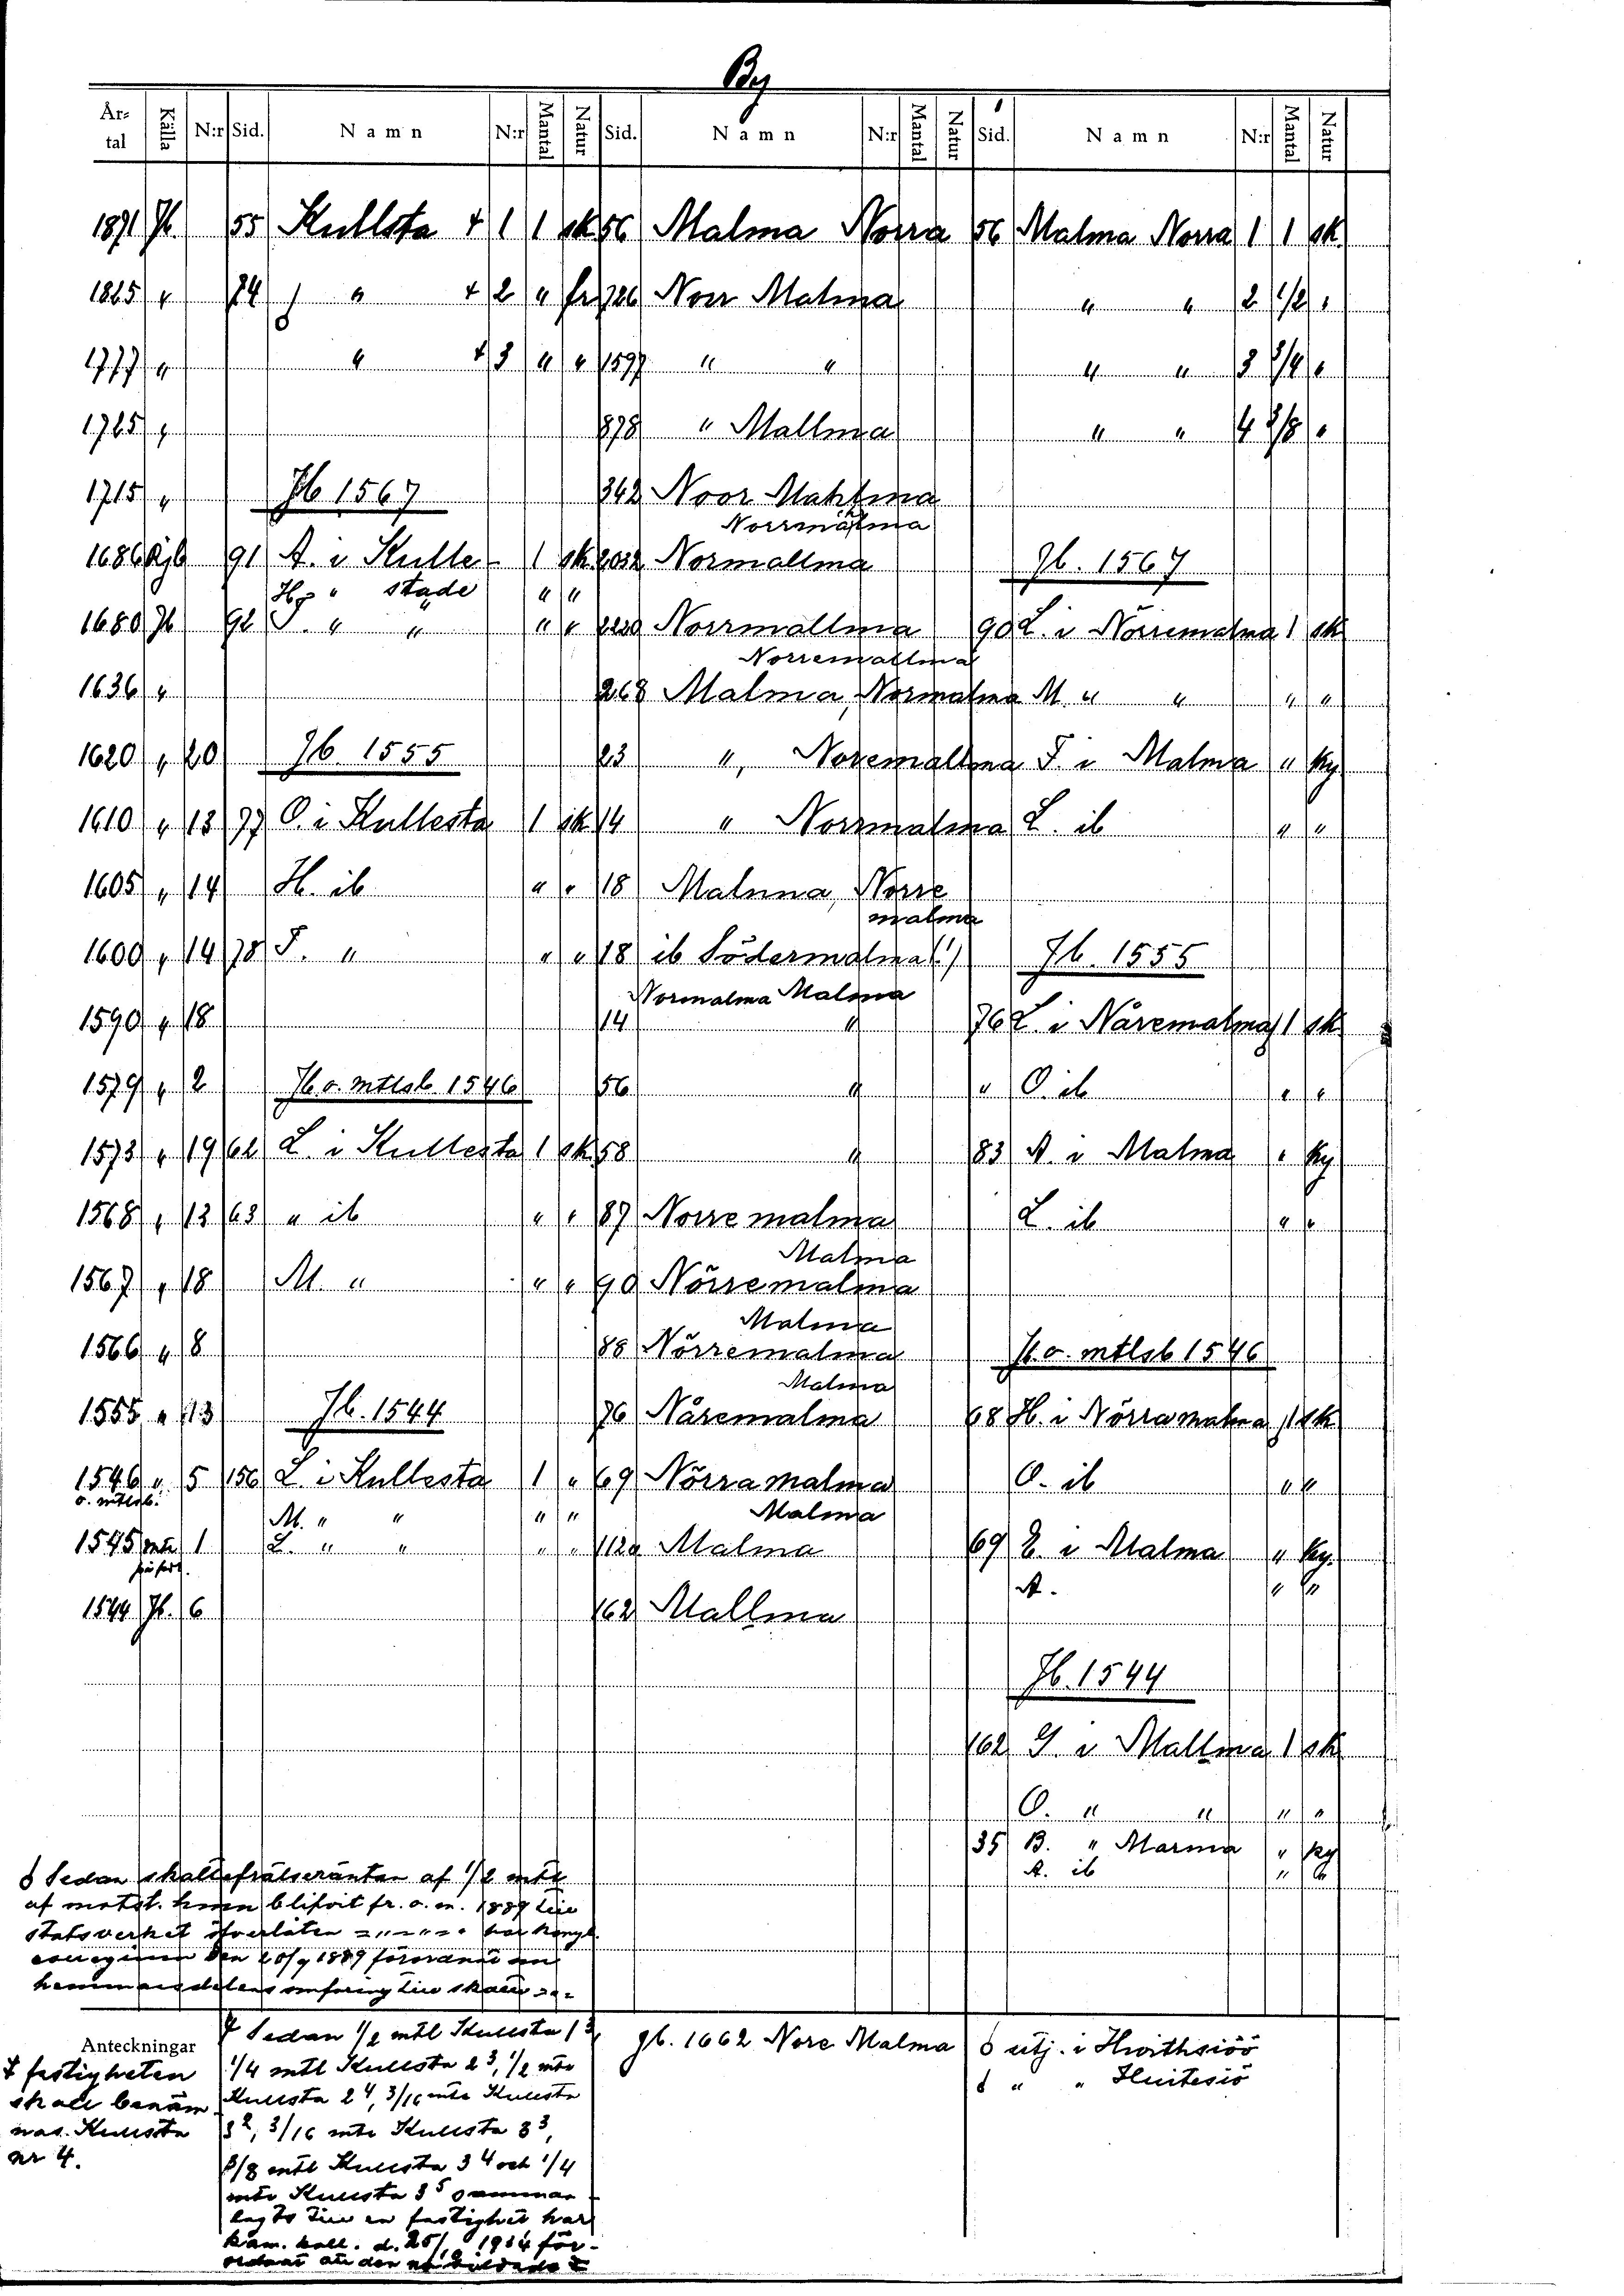 By
Årtal Källa N:r Sid. Namn N:r Mantal Natur Sid. Namn N:r Mantal Natur Sid. Namn N:r Mantal Natur
1871 Jb. 55 Kullsta + 1 1 sk 56 Malma Norra 56 Malma Norra 1 1 sk
1825 " " + 2 " fr 726 Norr Malma " " 2 1/2 "
1777 " " + 3 " " 1597 " " " " 3 3/4 "
1725 " 878 " Mallma " " 4 3/8 "
1715 " Jb 1567 342 Noor Mahlma
Norrmalma
1686 Kjb 91 A. i Kulle- 1 sk 2032 Normallma Jb. 1567
Hp " stade " "
1680 Jb 92 J. " " " " Norrmallma 90 L. i Nörremalma 1 sk
Norremallma
1636 " 268 Malma, Normalma M. " " " "
1620 " 20 Jb. 1555 23 ", Noremallma J. i Malma " Ky
1610 " 13 77 O. i Kullesta 1 sk 14 " Norrmalma L. ib " "
1605 " 14 H. ib " " 18 Malma, Norre
malma
1600 " 14 78 J. " " " 18 ib Södermalma (!) Jb. 1555
Normalma Malma
1590 " 18 14 " 76 L. i Nåremalma 1 sk
1579 " 2 Jb o. mtlsb. 1546 56 " " O. ib " "
1573 " 19 62 L. i Kullesta 1 sk 58 " 83 A. i Malma " Ky
1568 " 13 63 " ib " " 87 Norre malma L. ib " "
Malma
1567 " 18 M. " " " 90 Nörremalma
Malma
1566 " 8 88 Nörremalma Jb o. mtlsb 1546
Malma
1555 " 13 Jb. 1544 76 Nåremalma 68 H. i Nörramalma 1 sk
1546 " 5 156 L. i Kullesta 1 " 69 Nörra malma O. ib " "
o. mtlsb.
M. " " " " Malma
1545 1 L. " " " " 112a Malma 69 E. i Malma " Ky.
A. " "
1544 Jb. 6 162 Mallma
Jb. 1544
162 G. i Mallma 1 sk
O. " " " "
35 B. " Marma " Ky
A. ib " "
Sedan skattefrälseräntan af 1/2 mtl
af motst. hmn blifvit fr. o. m. 1889 till
statsverket öfverlåten har Kongl.
collegium den 20/9 1889 förordnat om
hemmansdelens omföring till skatte
Anteckningar
+ Sedan 1/2 mtl Kullsta 1 3,
1/4 mtl Kullsta 2 3, 1/2 mtl
Kullsta 2 4, 3/16 mtl Kullsta
3 2, 3/16 mtl Kullsta 3 3,
3/8 mtl Kullsta 3 4 och 1/4
mtl Kullsta 3 5 samman-
lagts till en fastighet har
kam. koll. d. 1914 för-
ordnat att den
+ fastigheten
skall benäm
nas. Kullsta
nr 4.
Jb. 1662 Nore Malma
utj. i Hwithsiöö
" " Huitesiö